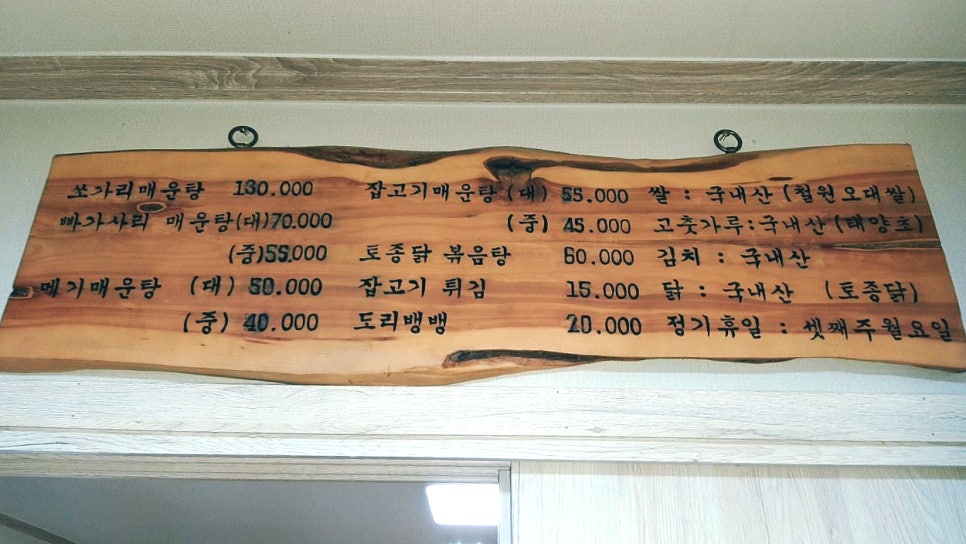 쏘가리매운탕 130.000 잡고기매운탕(대) 55.000 쌀 : 국내산(철원오대쌀)
빠가사리 매운탕(대)70.000 (중) 45.000 고춧가루:국내산(태양초)
(중)55.000 토종닭 볶음탕 60.000 김치 : 국내산
메기매운탕 (대) 50.000 잡고기 튀김 15.000 닭 : 국내산 (토종닭)
(중) 40.000 도리뱅뱅 20.000 정기휴일 : 셋째주월요일